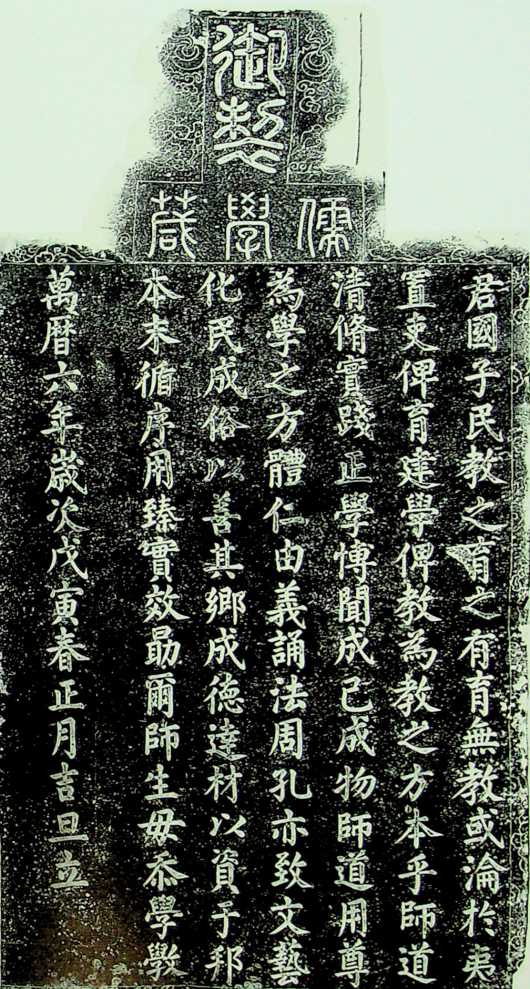 御製
儒學箴
君國子民教之育之有育無教或淪於夷
置吏俾育建學俾教為教之方本乎師道
清脩實踐正學博聞成己成物師道用尊
為學之方體仁由義誦法周孔亦致文藝
化民成俗以善其鄉成德達材以資于邦
本末循序用臻實效勗爾師生毋忝學斆
萬暦六年歲次戊寅春正月吉旦立